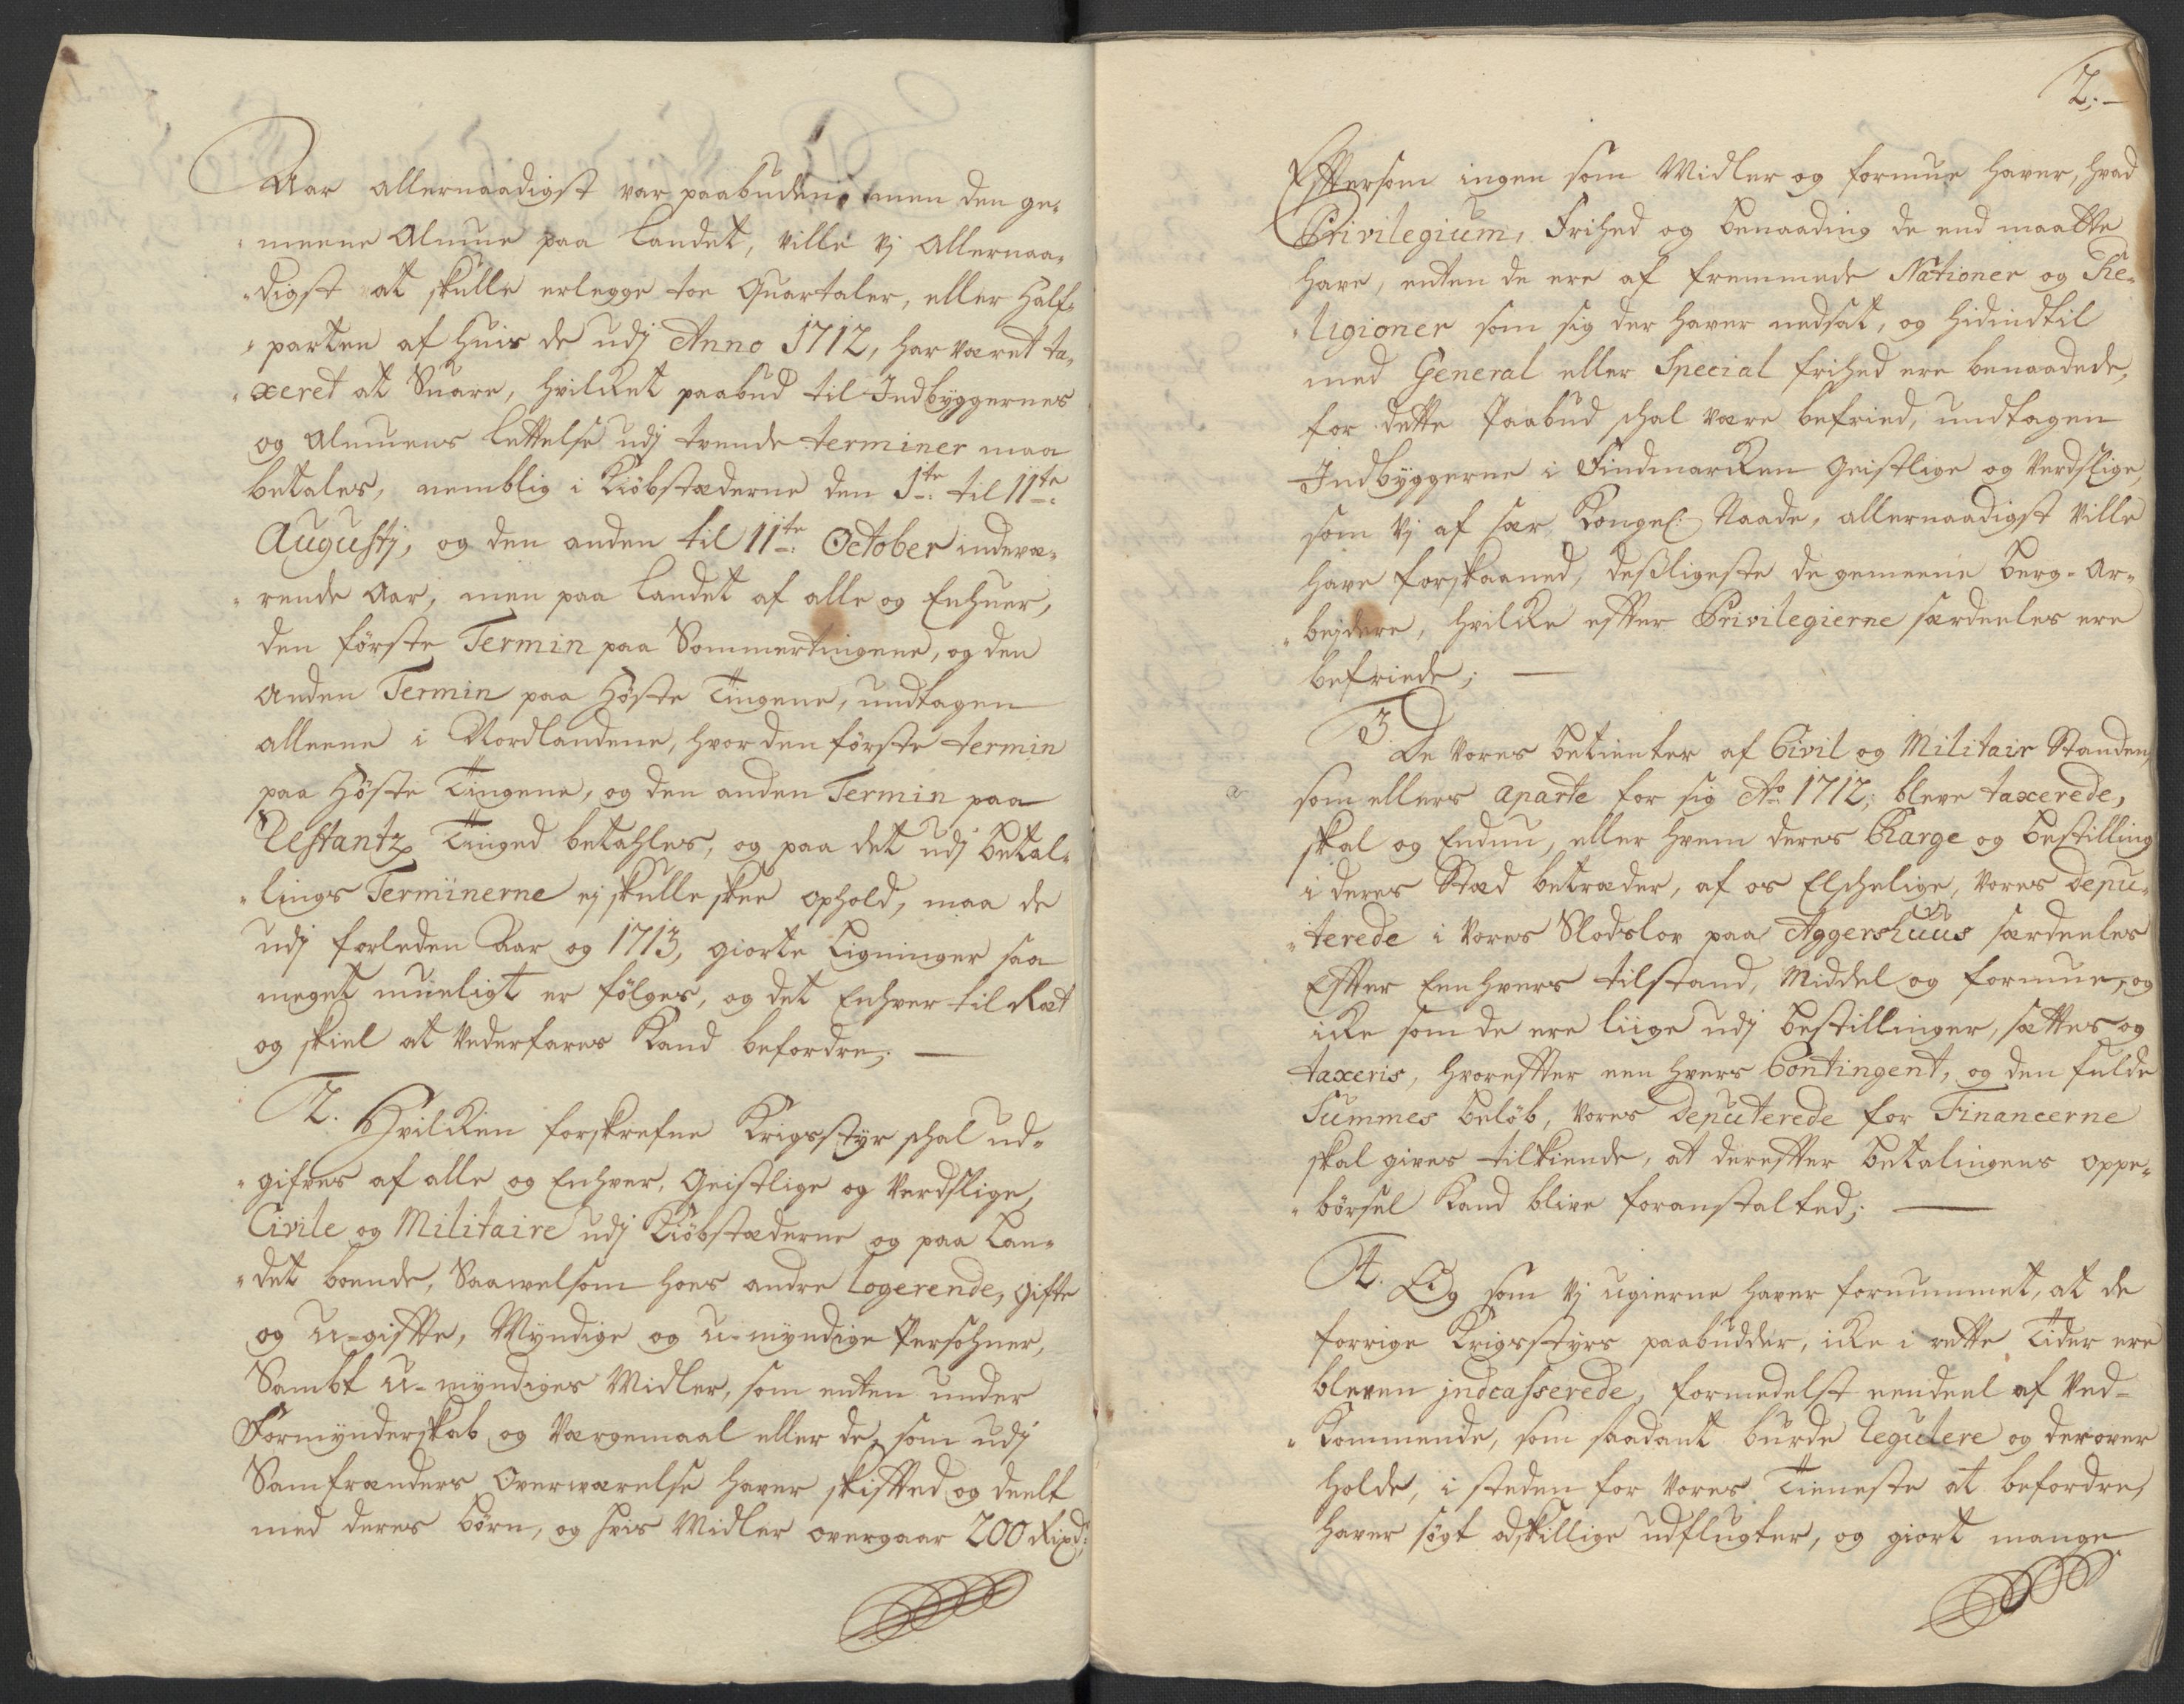 Aar allernaadigst var paabuden; men den ge-
meene Almue paa Landet, ville Vj allernaa-
digst at skulle erlegge toe Quartaler, eller Half-
parten af huis de udj Anno 1712, har været ta-
xeret at Suare, hvilket paabud til Indbyggernes
og Almuens Lettelse udj tvende terminer maa
betales, nemblig i Kiöbstæderne den 1te til 11te
Augustj, og den anden til 11te October indevæ-
rende Aar, men paa Landet af alle og Enhuer,
den förste Termin paa Sommertingene, og den
Anden Termin paa Höste Tingene, undtagen
alleene i Nordlandene, hvor den förste termin
paa Höste Tingene, og den anden Termin paa
Restantz Tinged betahles, og paa det udj betal-
lings Terminerne ej skulle skee ophold, maa de
udj forleden Aar og 1713, giorte Ligninger saa
meget mueligt er fölges, og det Enhver til Ræt
og skiel at Vederfares Kand befordre;
2. Hvilken forskrefne Krigsstyr schal ud-
gifves af alle og Enhver, Geistlige og Verdslige,
Civile og Militaire udj Kiöbstæderne og paa Lan-
det boende, Saawelsom hoes andre logerende, gifte
og u-giffte, Myndige og u-myndige Persohner,
Sambt u-myndiges Midler, som enten under
Formynderskab og Værgemaal eller de, som udj
Samfrænders Overværelse haver skifted og deelt
med deres börn, og hvis Midler overgaar 200 Rixd:
2.
Eftersom ingen som Midler og formue haver, hvad
Privilegium, Frihed og benaading de end maatte
have, enten de ere af fremmede Nationer og Re-
ligioner som sig der haver nedsat, og hidindtil
med General eller Special frihed ere benaadede,
for dette Paabud schal være befried, undtagen
Indbyggerne i Findmarcken Geistlige og Verdslige,
som Vj af sær Kongel: Naade, allernaadigst ville
have forskaaned, desligeste de gemeene Berg-Ar-
bejdere, hvilke effter Privilegierne særdeeles ere
befriede;
3. De Vores betienter af Civil og Militair Standen,
som ellers aparte for sig Ao 1712, bleve taxerede,
skal og Endnu, eller hvem deres Charge og bestilling
i deres Stæd betræder, af os Elschelige, Vores depu-
terede i Vores Slodslov paa Aggershuus særdeeles
Effter Een hvers tilstand, Middel og formue, og
icke som de ere liige udj bestillinger, sættes og
taxeris, hvoreffter een hvers Contingent, og den fulde
Summes belöb, Vores Deputerede for Financerne
skal gives tilkiende, at dereffter betalingens oppe-
börsel Kand blive foranstalted;
4. Og som Vj ugierne haver fornummet, at de
forrige Krigsstyrs paabudder, icke i rette Tider ere
bleven jndcasserede, formedelst eendeel af Ved-
Kommende, som saadant burde regulere og derover
holde, i steden for Vores Tieneste at befordre,
haver sögt adskillige udflugter, og giort mange